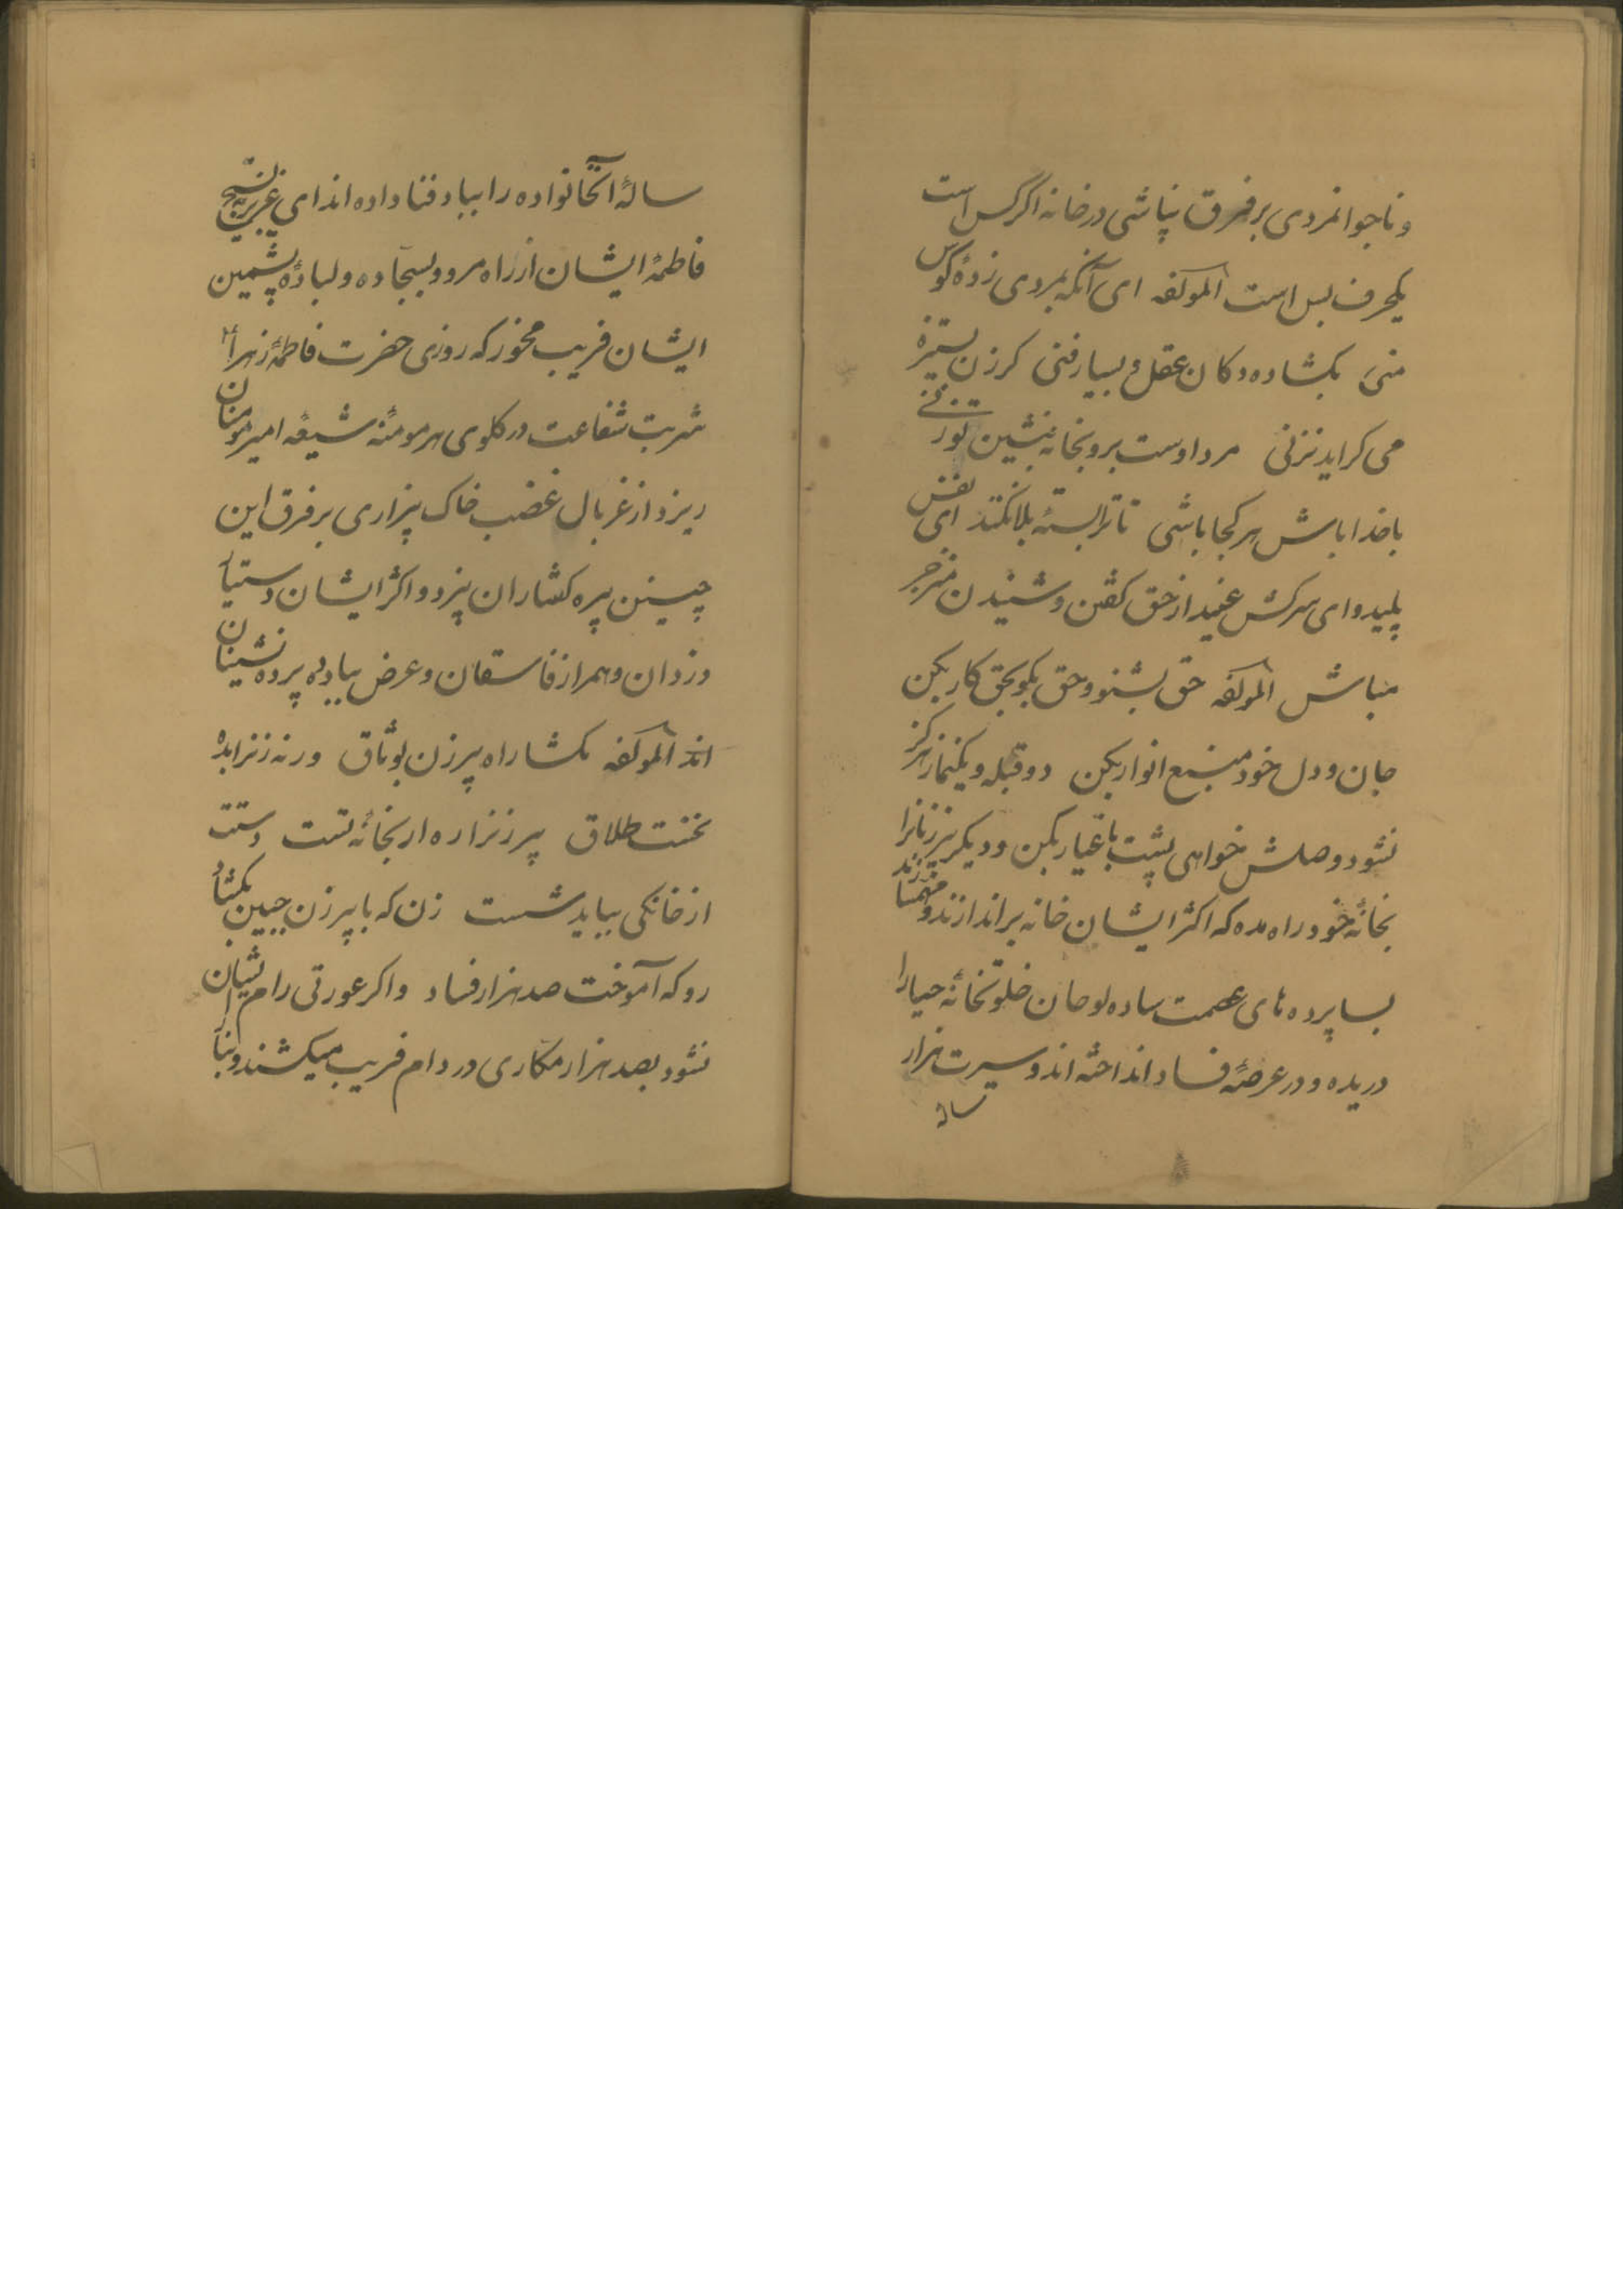 و ناجوانمردی بر فرق نپاشی در خانه اگر کس است
یکحرف بس است لمؤلفه ای آنکه بمردی زدهٔ کوس
منی بکشاده دکان عقل بسیار فنی کر زن بستیزه
می کراید نزنی مرد اوست برو بخانه بنشین تو زنی
با خدا باش هر کجا باشی تا ترا بستهٔ بلا نکند ای نفس
پلید و ای سرکش عنید از حق کفتن و شنیدن منزجر
مباش لمؤلفه حق بشنو و حق بکو بحق کار بکن
جان و دل خود منبع انوار بکن دو قبله و یکنماز هرکز
نشود وصلش خواهی پشت باغیار بکن و دیکر پیرزنانرا
بخانهٔ خود راه مده که اکثر ایشان خانه براندازند و
بسا پرده های عصمت ساده لوحان خلوتخانهٔ حیا را
دریده و در عرصهٔ فساد انداخته اند و سیرت هزار
ساله
سالهٔ آنخانواده را بباد فنا داده اند ای عزیز به تسبیح
فاطمهٔ ایشان از راه مرو و بسجاده و لبادهٔ پشمین
ایشان فریب مخور که روزی حضرت فاطمهٔ زهرا
شربت شفاعت در کلوی هر مومنهٔ شیعه امیر مومنان
ریزد از غربال غضب خاک بیزاری بر فرق این
چنین پیره کفتاران بیزد و اکثر ایشان دستیار
دزدان و همراز فاسقان و عرض بباد ده پرده نشینان
اند لمؤلفه مکشا راه پیرزن بوثاق ورنه زنرا بده
نخست طلاق پیرزنرا ره ار بخانهٔ تست دستت
از خانکی بباید شست زن که با پیرزن جبین بکشاد
رو که آموخت صد هزار فساد و اکر عورتی رام ایشان
نشود بصد هزار مکاری در دام فریب میکشند و بنا